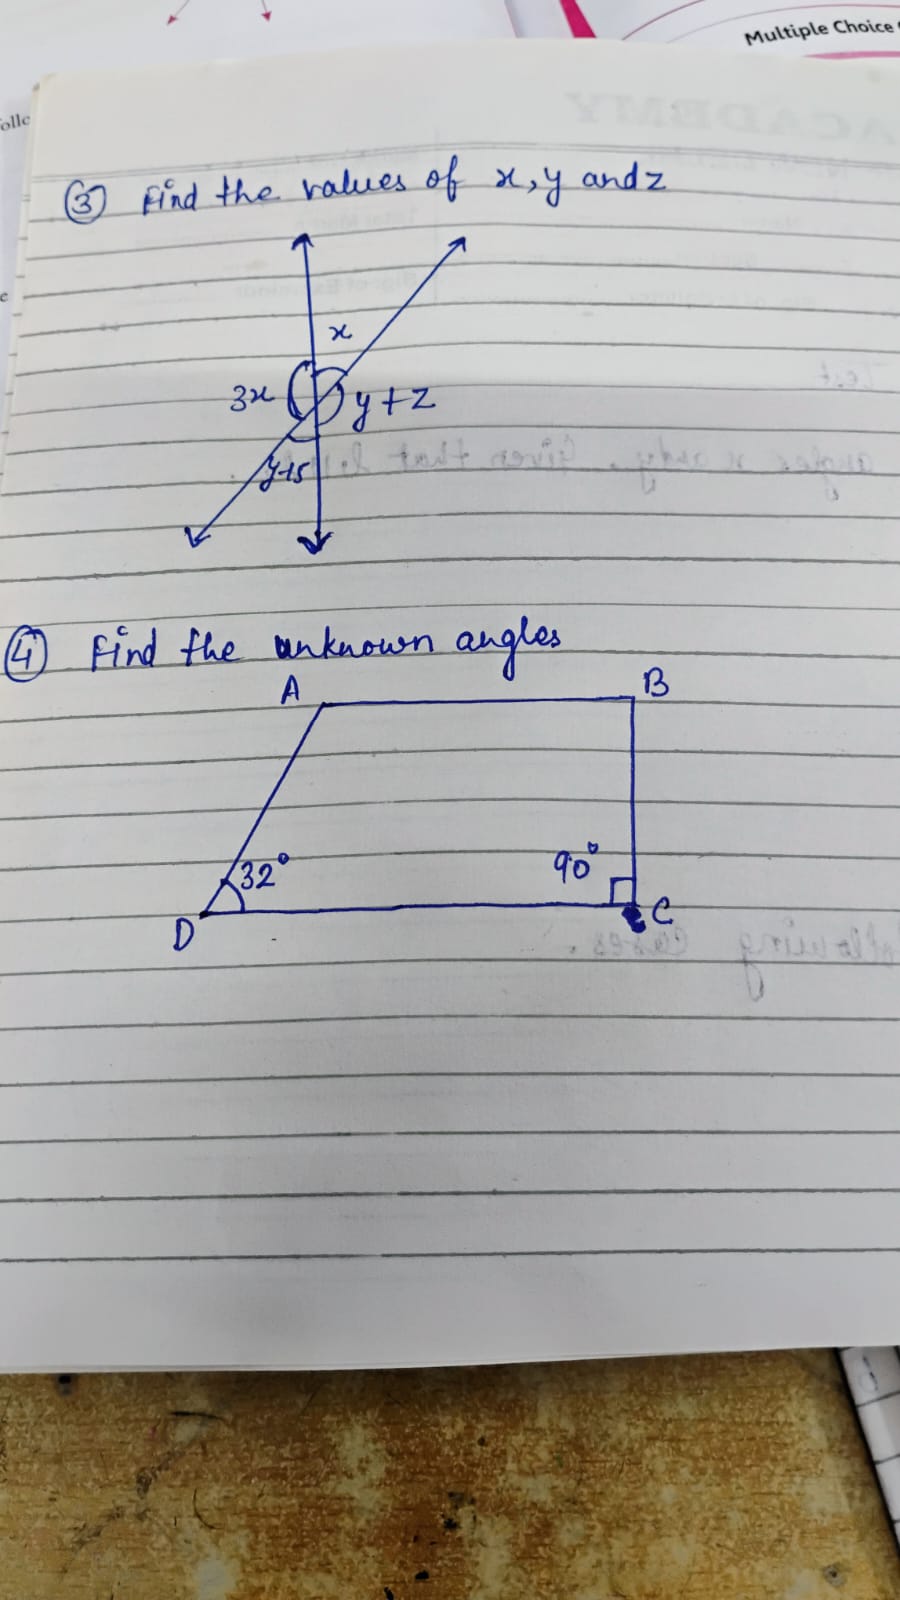 Multiple Choice
③ Find the values of x, y and z
x
3x
y+z
y+5
④ Find the unknown angles
A B
32° 90°
D C